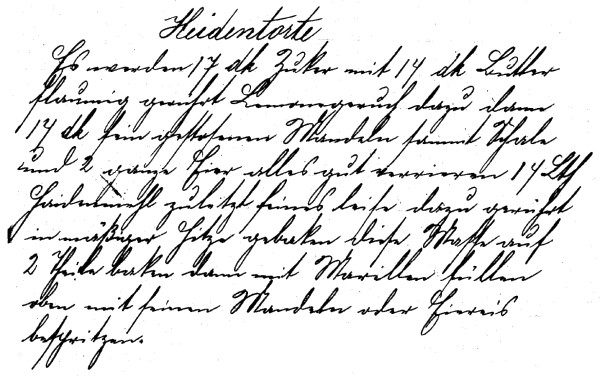 Heidentorte
Es werden 17 dk Zuker mit 14 dk Butter
flaumig gerührt Lemonegeruch dazu dann
14 dk fein gestosenen Mandeln sammt Schale
und 2 ganze Eier alles gut verrieren 14 Lth
Haidenmehl zuletzt feines leise dazu gerührt
in mäßiger Hitze gebaken diese Masse auf
2 Theile baken dann mit Marillen füllen
oben mit feinen Mandeln oder Eiereis
bespritzen.